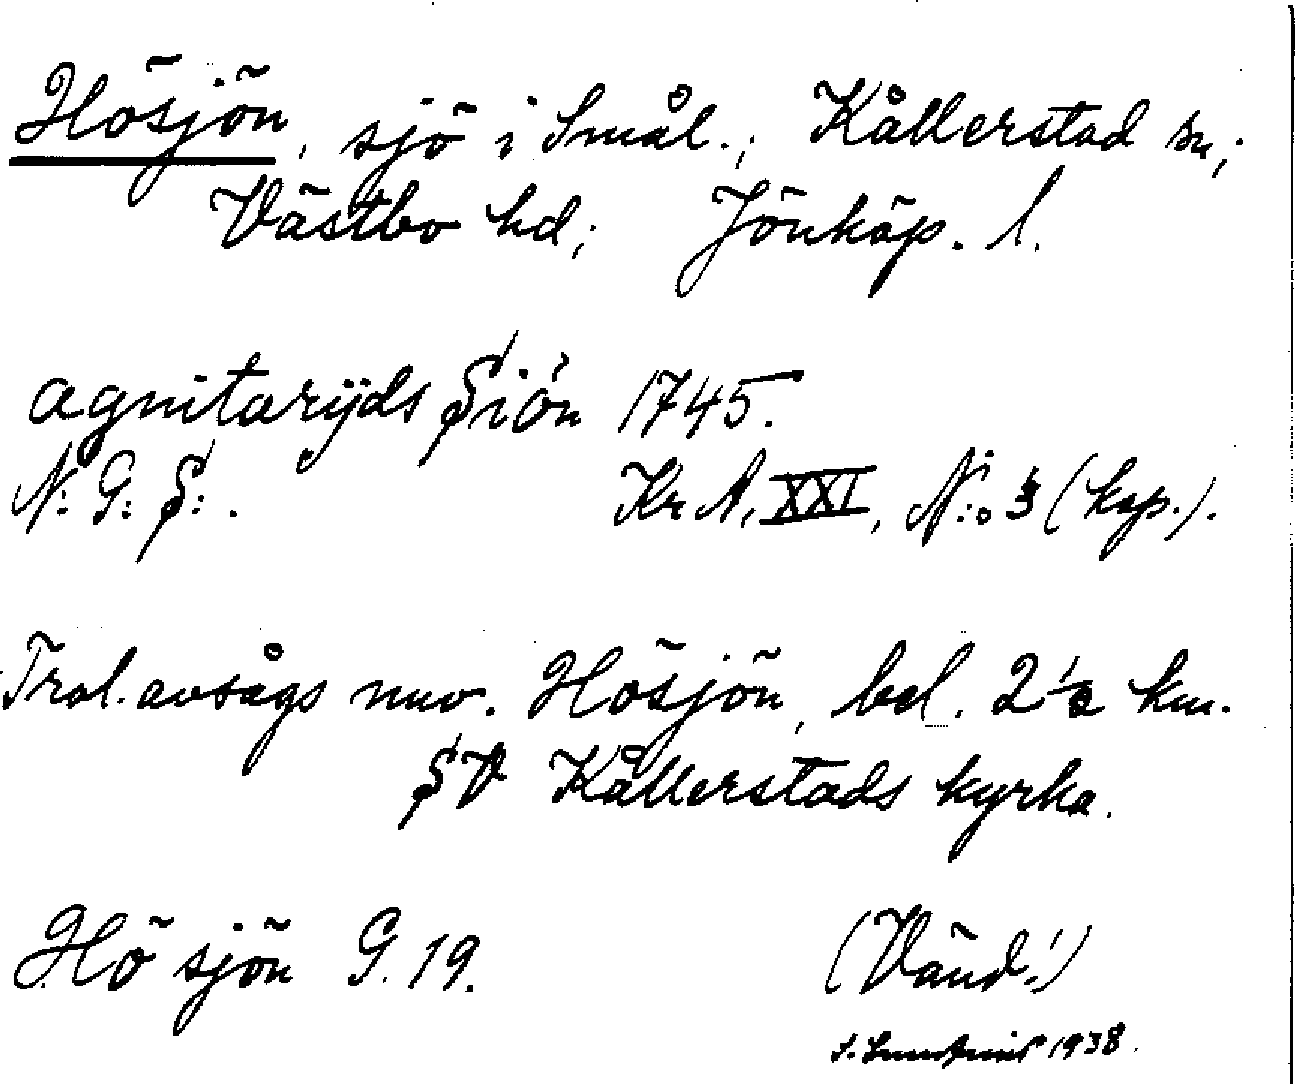 Hösjön, sjö i Smål.; Kållerstad sn;
Västbo hd; Jönköp. l.
agnitarÿds Siön 1745.
N: G: S: . Kr A, XXI, N:o 3 (kop.).
Trol. avsågs nuv. Hösjön, bel. 2 1/2 km.
SV Kållerstads kyrka.
Hö sjön G. 19. (Vänd!)
1938.